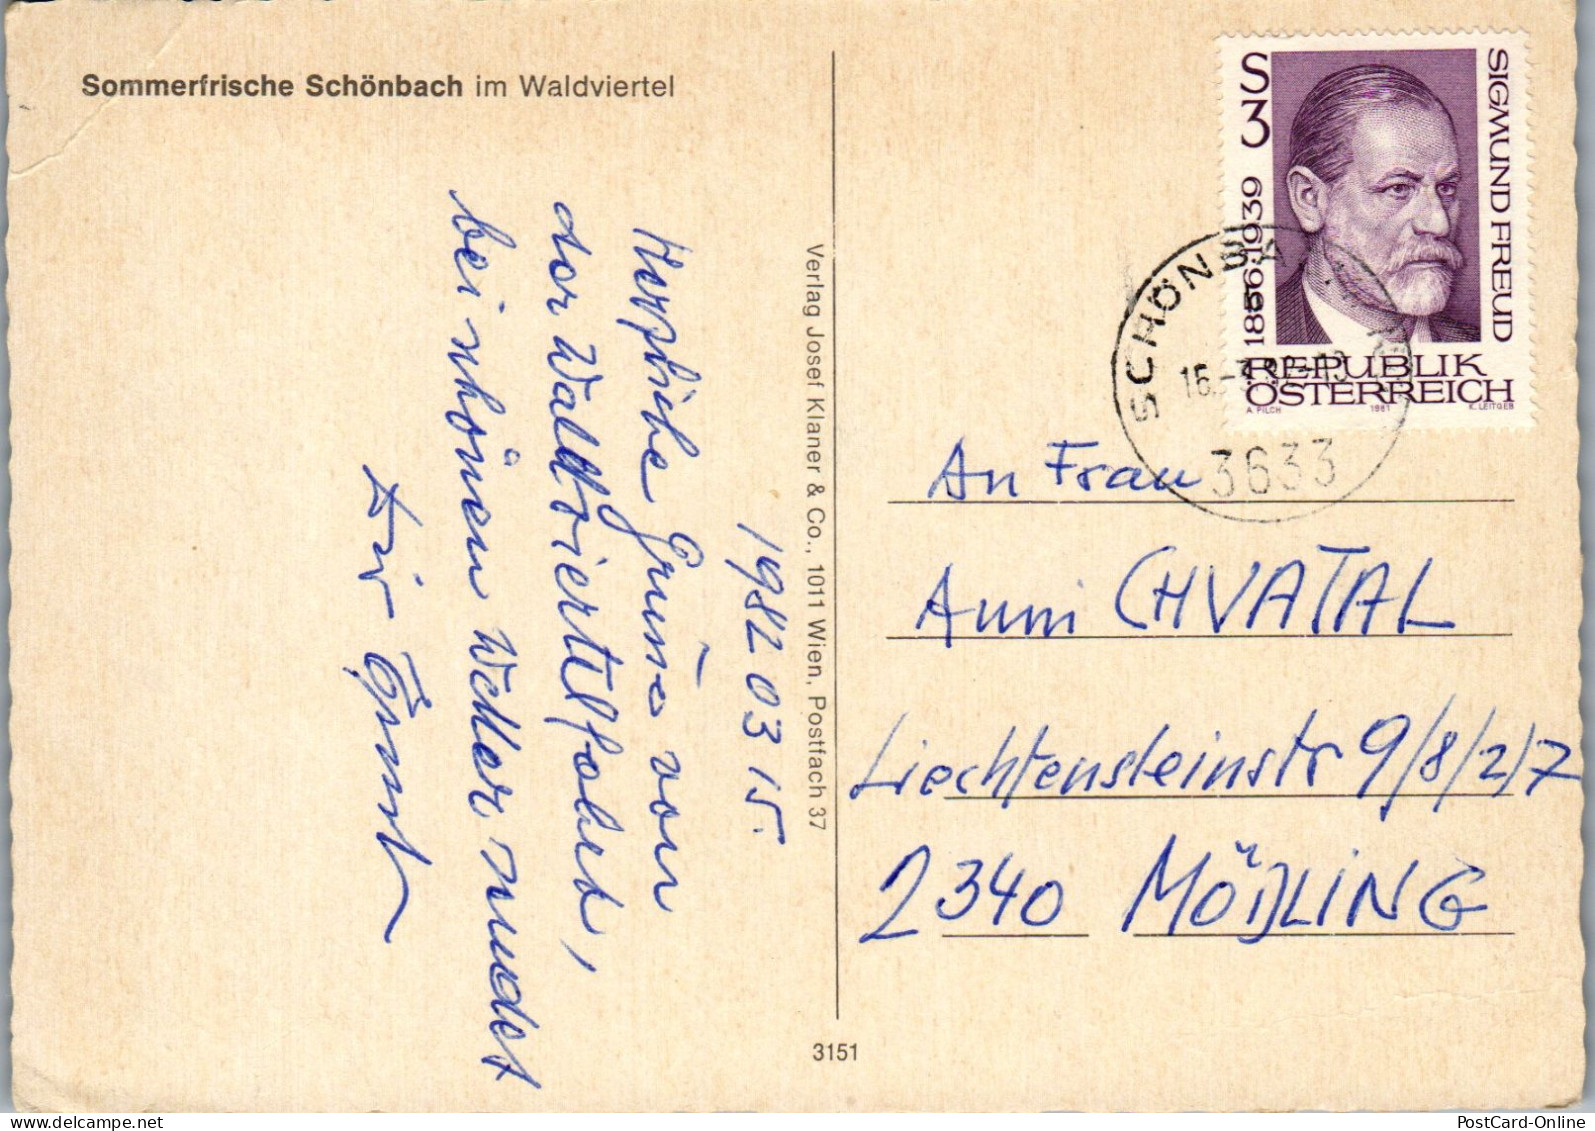 Sommerfrische Schönbach im Waldviertel
1982 03 15.
Herzliche Grüße von
der Waldviertelfahrt,
bei schönem Wetter, sendet
Dir Ernst
Verlag Josef Klaner & Co., 1011 Wien, Postfach 37
3151
S 3
SIGMUND FREUD
1856-1939
REPUBLIK
ÖSTERREICH
A. PILCH 1981 K. LEITGEB
SCHÖNBA
3633
An Frau
Anni CHVATAL
Liechtensteinstr 9/8/2/7
2340 MÖDLING
PostCard-Online